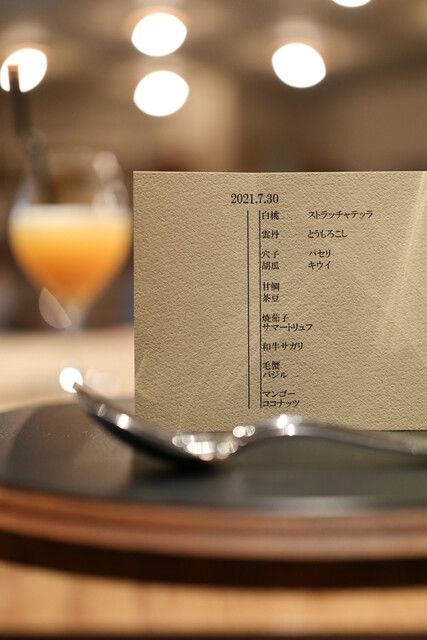 2021.7.30
白桃 ストラッチャテッラ
雲丹 とうもろこし
穴子 パセリ
胡瓜 キウイ
甘鯛
茶豆
焼茄子
サマートリュフ
和牛サガリ
毛蟹
バジル
マンゴー
ココナッツ